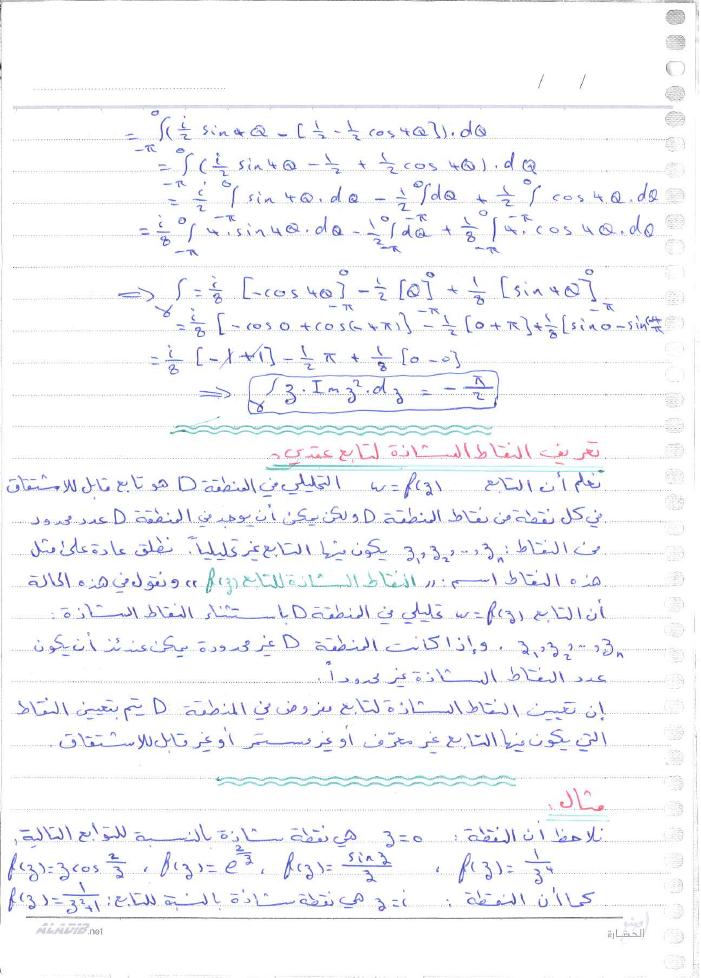 / /
= ∫_{-π}^{0} (i/2 sin4θ - [1/2 - 1/2 cos4θ]).dθ
= ∫_{-π}^{0} (i/2 sin4θ - 1/2 + 1/2 cos4θ).dθ
= i/2 ∫_{-π}^{0} sin4θ.dθ - 1/2 ∫_{-π}^{0} dθ + 1/2 ∫_{-π}^{0} cos4θ.dθ
= i/8 ∫_{-π}^{0} 4.sin4θ.dθ - 1/2 ∫_{-π}^{0} dθ + 1/8 ∫_{-π}^{0} 4.cos4θ.dθ
⟹ ∫_γ = i/8 [-cos4θ]_{-π}^{0} - 1/2 [θ]_{-π}^{0} + 1/8 [sin4θ]_{-π}^{0}
= i/8 [-cos0 + cos(-4π)] - 1/2 [0+π] + 1/8 [sin0 - sin
= i/8 [-1+1] - 1/2 π + 1/8 [0-0]
⟹ ∫_γ z.Im z².dz = - π/2
تعريف النقاط الشاذة لتابع عقدي:
نعلم أن التابع w=f(z) التحليلي في المنطقة D هو تابع قابل للاشتقاق
في كل نقطة من نقاط المنطقة D ولكن يمكن أن يوجد في المنطقة D عدد محدود
من النقاط: z₁, z₂, ..., zₙ يكون فيها التابع غير تحليلياً. نطلق عادة على مثل
هذه النقاط اسم: "النقاط الشاذة للتابع f(z)" ونقول في هذه الحالة
أن التابع w=f(z) تحليلي في المنطقة D باستثناء النقاط الشاذة:
z₁, z₂, ..., zₙ. وإذا كانت المنطقة D غير محدودة يمكن عندئذ أن يكون
عدد النقاط الشاذة غير محدوداً.
إن تعيين النقاط الشاذة لتابع مفروض في المنطقة D يتم بتعيين النقاط
التي يكون فيها التابع غير معرّف أو غير مستمر أو غير قابل للاشتقاق.
مثال:
نلاحظ أن النقطة: z=0 هي نقطة شاذة بالنسبة للتوابع التالية:
f(z)=1/z⁴ , f(z)=sinz/z , f(z)=e^{2/z} , f(z)=z cos 2/z
كما أن النقطة: z=i هي نقطة شاذة بالنسبة للتابع: f(z)=1/(z²+1)
ALADIB.net
الحضارة